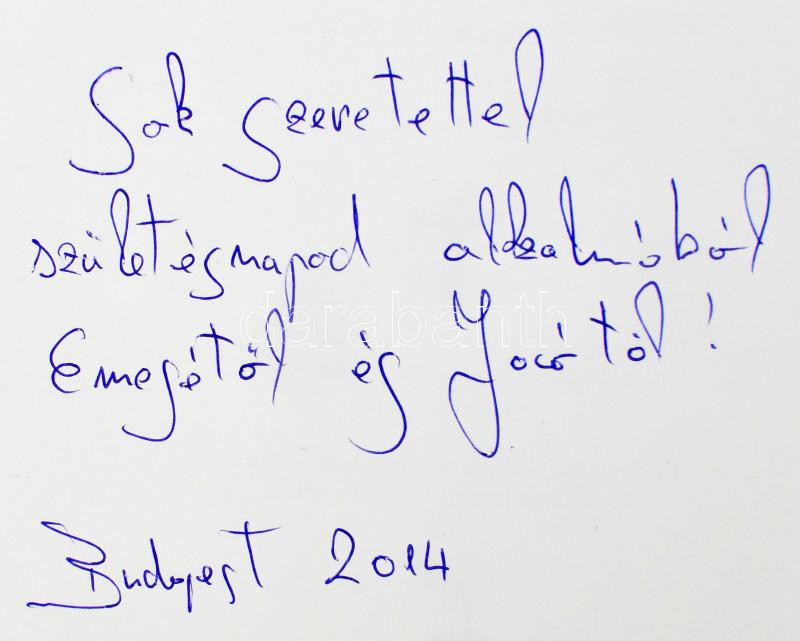 Sok szeretettel
születésnapod alkalmából
Emesétől és Jocótól!
Budapest 2014
darabanth